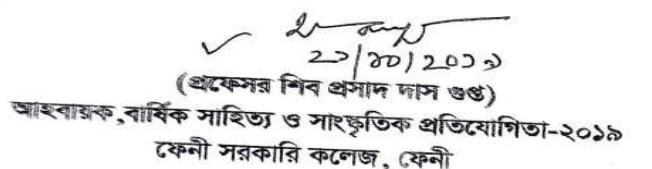 ২১/১০/২০১৯
(প্রফেসর শিব প্রসাদ দাস গুপ্ত)
আহবায়ক,বার্ষিক সাহিত্য ও সাংস্কৃতিক প্রতিযোগিতা-২০১৯
ফেনী সরকারি কলেজ, ফেনী